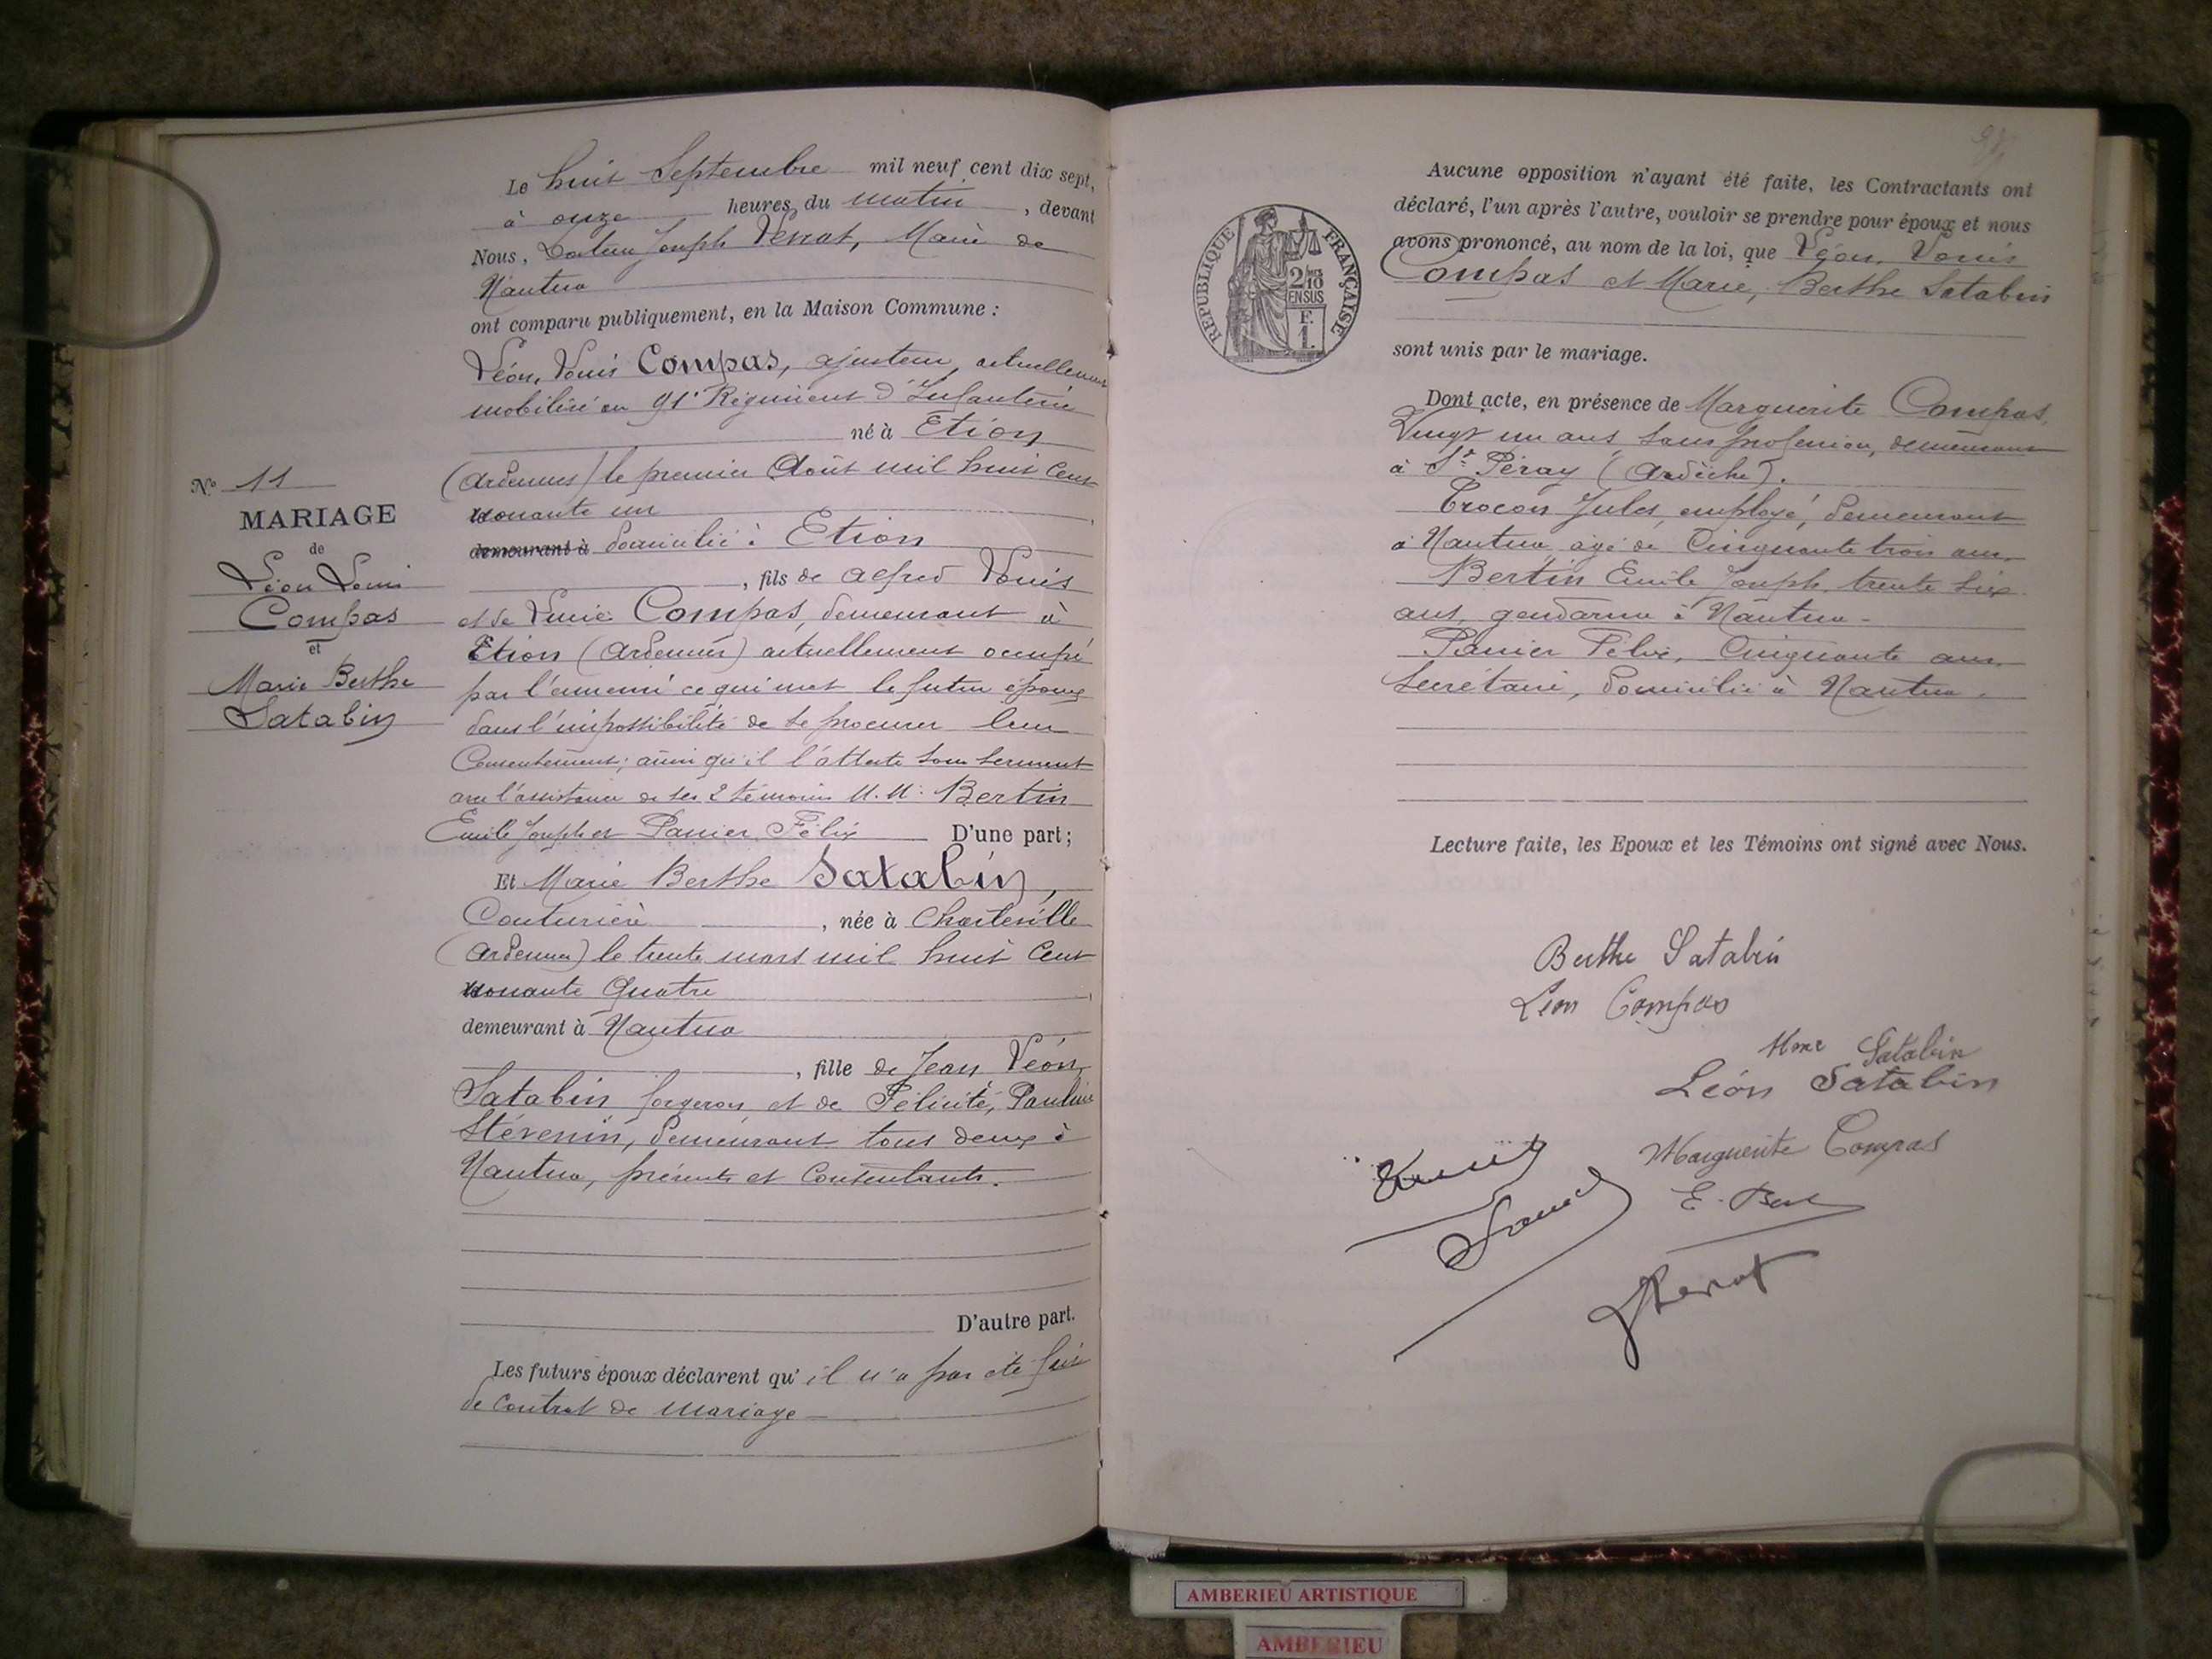 Le huit Septembre mil neuf cent dix sept,
à onze heures du matin, devant
Nous, Joseph Verrat, Maire de
Nantua
ont comparu publiquement, en la Maison Commune :
Léon, Louis Compas, ajusteur, actuellement
mobilisé au 91e Régiment d'Infanterie
né à Etion
(Ardennes) le premier Août mil huit cent
nonante un
demeurant à domicilié à Etion
, fils de Alfred Louis
et de Lucie Compas, demeurant à
Etion (Ardennes) actuellement occupé
par l'ennemi ce qui met le futur époux
dans l'impossibilité de se procurer leur
Consentement; ainsi qu'il l'atteste sous serment
avec l'assistance de ses 2 témoins M.M. Bertin
Emile Joseph et Panier Félix D'une part;
Nº 11
MARIAGE
de
Léon Louis
Compas
et
Marie Berthe
Satabin
Et Marie Berthe Satabin,
Couturière, née à Charleville
(Ardennes) le trente mars mil huit Cent
nonante Quatre
demeurant à Nantua
, fille de Jean Léon
Satabin forgeron et de Félicité, Pauline
Stévenin, demeurant tous deux à
Nantua, présents et Consentants.
D'autre part.
Les futurs époux déclarent qu'il n'a pas été fait
de Contrat de Mariage
REPUBLIQUE FRANÇAISE
2/10
EN SUS
F.
1.
Aucune opposition n'ayant été faite, les Contractants ont
déclaré, l'un après l'autre, vouloir se prendre pour époux et nous
avons prononcé, au nom de la loi, que Léon, Louis
Compas et Marie, Berthe Satabin
sont unis par le mariage.
Dont acte, en présence de Marguerite Compas,
Vingt un ans, sans profession, demeurant
à St Péray (Ardèche).
Trocon Jules, employé, demeurant
à Nantua, âgé de Cinquante trois ans,
Bertin Emile Joseph, trente six
ans, gendarme à Nantua
Panier Félix, Cinquante ans,
Secrétaire, domicilié à Nantua.
Lecture faite, les Epoux et les Témoins ont signé avec Nous.
Berthe Satabin
Léon Compas
Mme Satabin
Léon Satabin
Marguerite Compas
AMBERIEU ARTISTIQUE
AMBERIEU